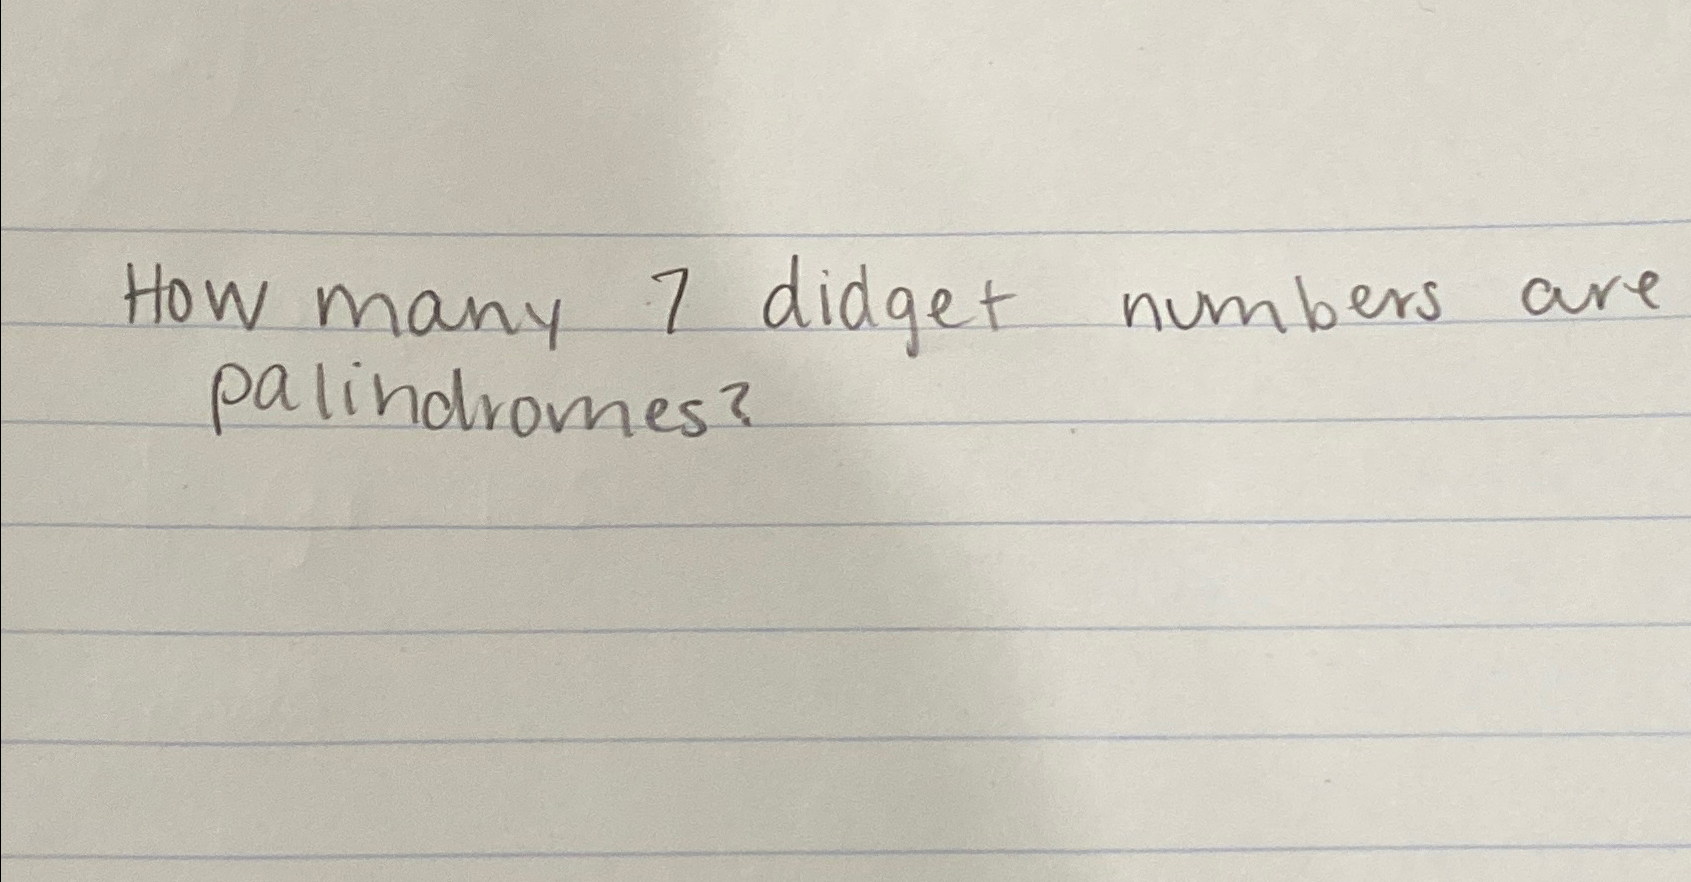 How many 7 didget numbers are
palindromes?